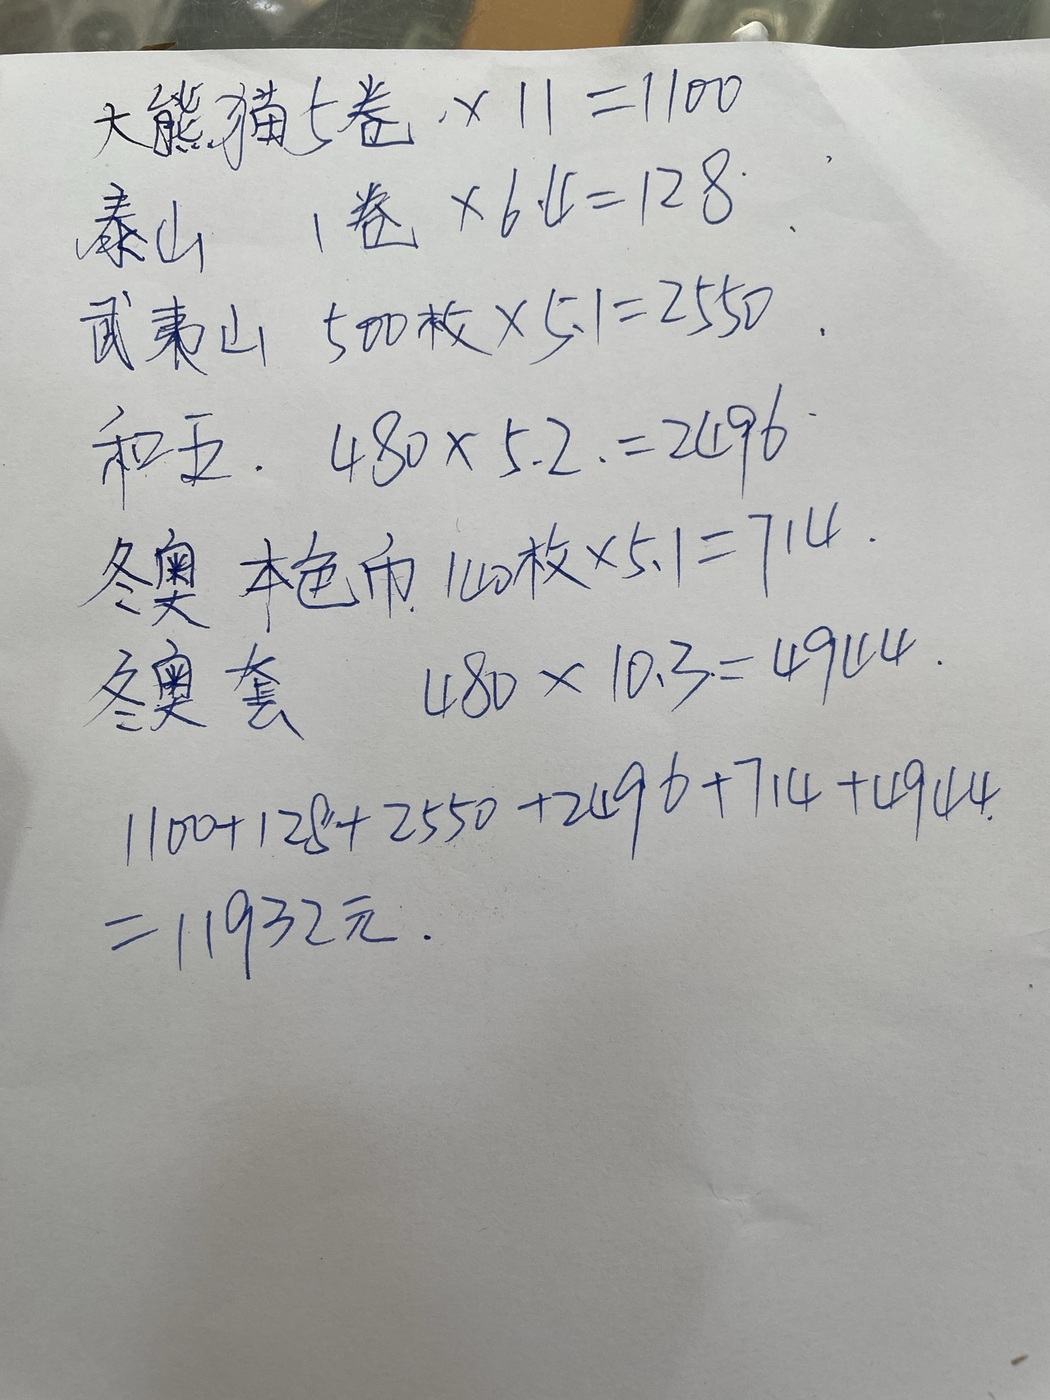 大熊猫5卷.×11=1100
泰山 1卷 ×6.4=128.
武夷山 500枚×5.1=2550.
和玉. 480×5.2.=2496
冬奥 本色币.140枚×5.1=714.
冬奥套 480×10.3=4944.
1100+128+2550+2496+714+4944.
=11932元.